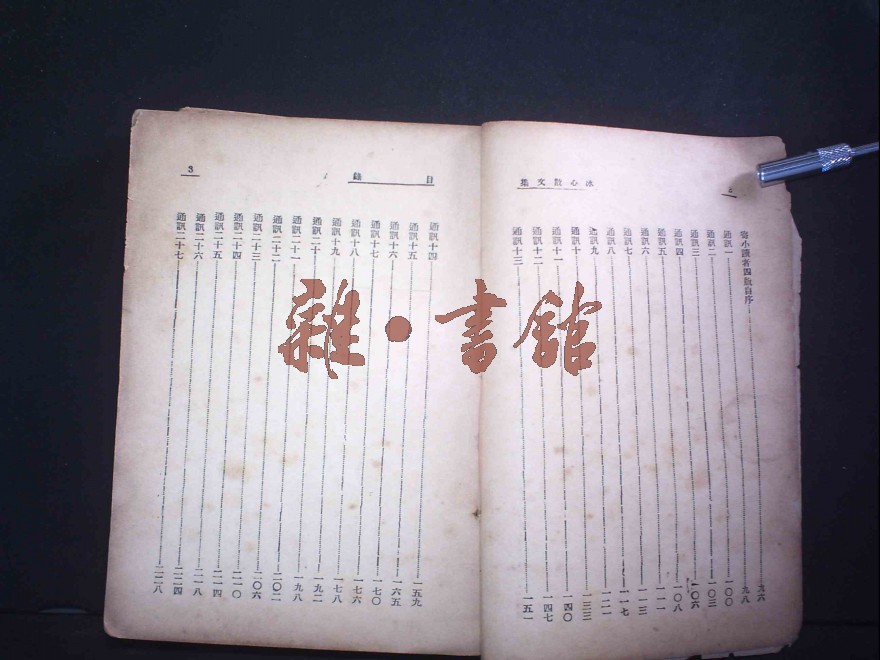 2 冰心散文集
寄小讀者四版自序 九六
通訊一 九八
通訊二 一〇〇
通訊三 一〇三
通訊四 一〇六
通訊五 一〇八
通訊六 一一一
通訊七 一一三
通訊八 一一七
通訊九 一二一
通訊十 一三三
通訊十一 一四〇
通訊十二 一四七
通訊十三 一五一
目錄 3
通訊十四 一五九
通訊十五 一六五
通訊十六 一七〇
通訊十七 一七六
通訊十八 一七八
通訊十九 一九二
通訊二十 一九八
通訊二十一 二〇二
通訊二十二 二〇六
通訊二十三 二一〇
通訊二十四 二一四
通訊二十五 二一八
通訊二十六 二二四
通訊二十七 二二八
雜·書館